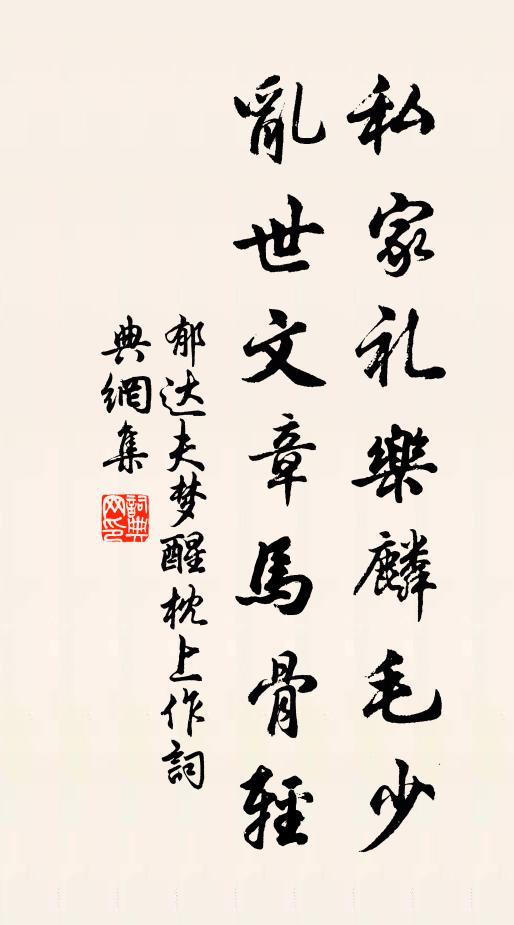 私家礼樂麟毛少
亂世文章馬骨輕
郁达夫梦醒枕上作詞
典網集
詞典
网印